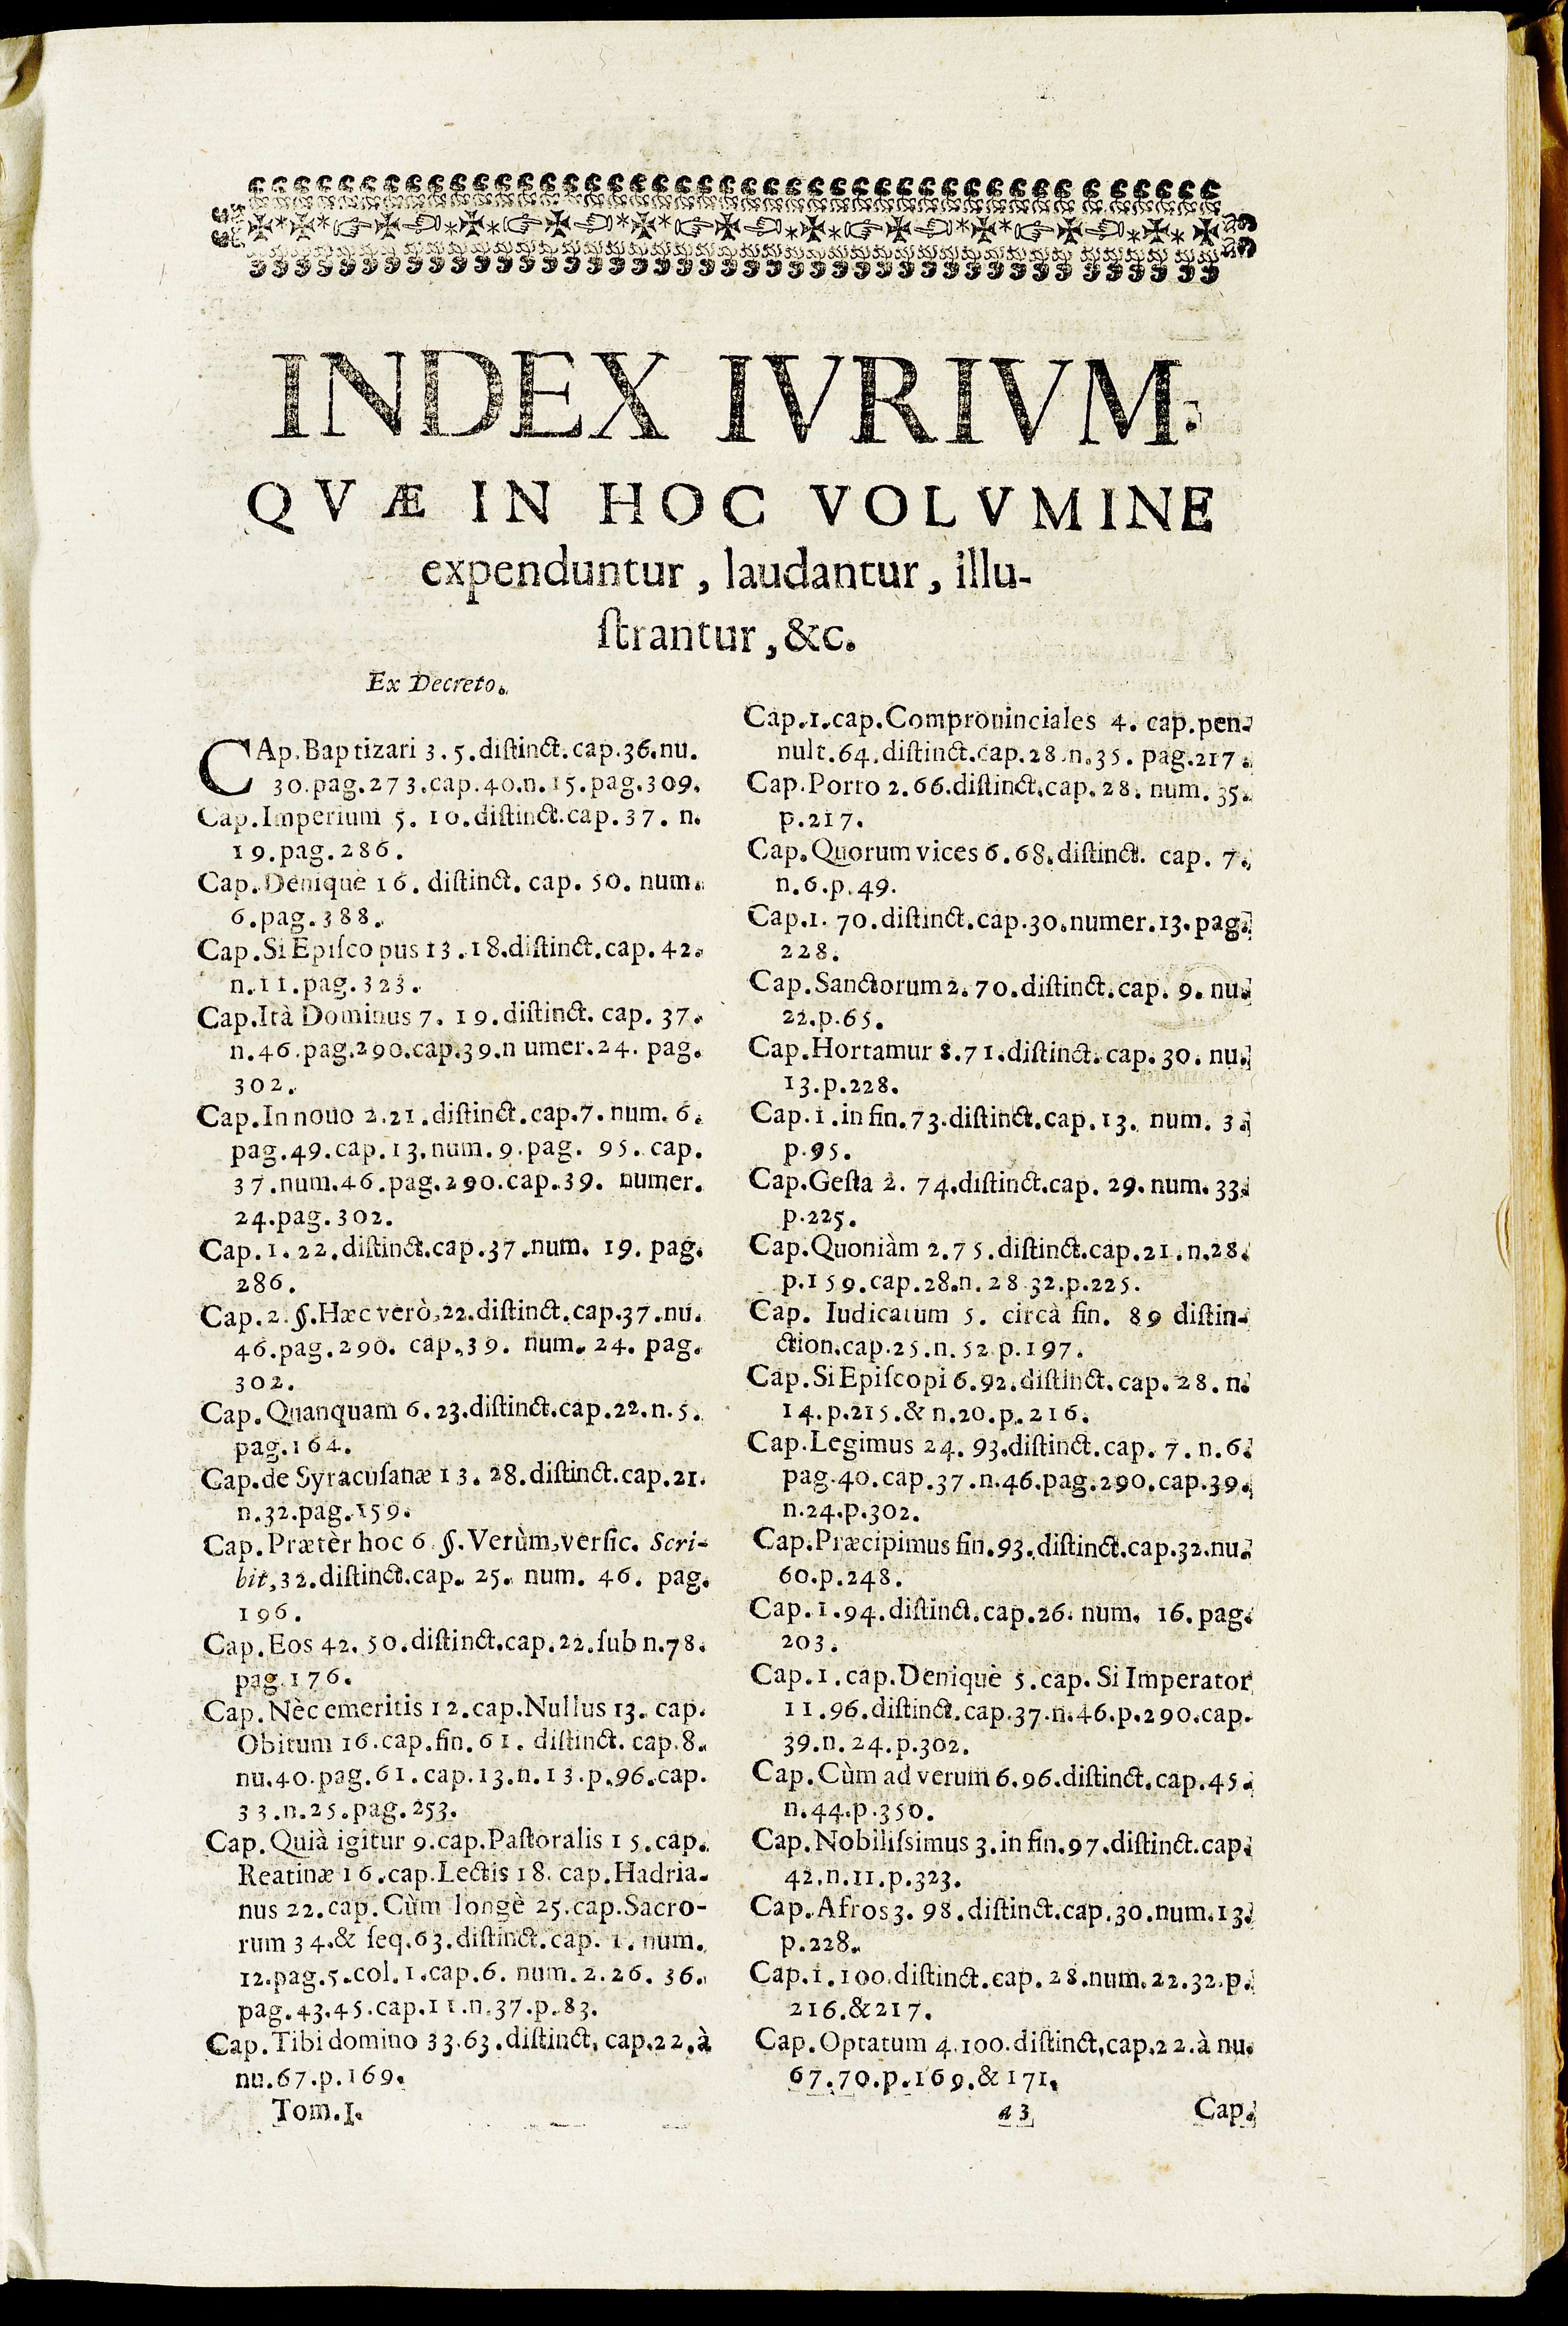 INDEX IVRIVM:
QVÆ IN HOC VOLVMINE
expenduntur, laudantur, illu-
ſtrantur, &c.
Ex Decreto.
CAp. Baptizari 3. 5. diſtinct. cap. 36. nu.
30. pag. 273. cap. 40. n. 15. pag. 309.
Cap. Imperium 5. 10. diſtinct. cap. 37. n.
19. pag. 286.
Cap. Denique 16. diſtinct. cap. 50. num.
6. pag. 388.
Cap. Si Epiſcopus 13. 18. diſtinct. cap. 42.
n. 11. pag. 323.
Cap. Ità Dominus 7. 19. diſtinct. cap. 37.
n. 46. pag. 290. cap. 39. n umer. 24. pag.
302.
Cap. In nouo 2. 21. diſtinct. cap. 7. num. 6.
pag. 49. cap. 13. num. 9. pag. 95. cap.
37. num. 46. pag. 290. cap. 39. numer.
24. pag. 302.
Cap. 1. 22. diſtinct. cap. 37. num. 19. pag.
286.
Cap. 2. §. Hæc verò, 22. diſtinct. cap. 37. nu.
46. pag. 290. cap. 39. num. 24. pag.
302.
Cap. Quanquam 6. 23. diſtinct. cap. 22. n. 5.
pag. 164.
Cap. de Syracuſanæ 13. 28. diſtinct. cap. 21.
n. 32. pag. 159.
Cap. Prætèr hoc 6 §. Verùm, verſic. Scri-
bit, 32. diſtinct. cap. 25. num. 46. pag.
196.
Cap. Eos 42. 50. diſtinct. cap. 22. ſub n. 78.
pag. 176.
Cap. Nèc emeritis 12. cap. Nullus 13. cap.
Obitum 16. cap. fin. 61. diſtinct. cap. 8.
nu. 40. pag. 61. cap. 13. n. 13. p. 96. cap.
33. n. 25. pag. 253.
Cap. Quià igitur 9. cap. Paſtoralis 15. cap.
Reatinæ 16. cap. Lectis 18. cap. Hadria-
nus 22. cap. Cùm longè 25. cap. Sacro-
rum 34. & ſeq. 63. diſtinct. cap. 1. num.
12. pag. 5. col. 1. cap. 6. num. 2. 26. 36.
pag. 43. 45. cap. 11. n. 37. p. 83.
Cap. Tibi domino 33. 63. diſtinct. cap. 22. à
nu. 67. p. 169.
Cap. 1. cap. Comprouinciales 4. cap. pen-
nult. 64. diſtinct. cap. 28. n. 35. pag. 217.
Cap. Porro 2. 66. diſtinct. cap. 28. num. 35.
p. 217.
Cap. Quorum vices 6. 68. diſtinct. cap. 7.
n. 6. p. 49.
Cap. 1. 70. diſtinct. cap. 30. numer. 13. pag.
228.
Cap. Sanctorum 2. 70. diſtinct. cap. 9. nu.
22. p. 65.
Cap. Hortamur 8. 71. diſtinct. cap. 30. nu.
13. p. 228.
Cap. 1. in fin. 73. diſtinct. cap. 13. num. 3.
p. 95.
Cap. Geſta 2. 74. diſtinct. cap. 29. num. 33.
p. 225.
Cap. Quoniàm 2. 75. diſtinct. cap. 21. n. 28.
p. 159. cap. 28. n. 28 32. p. 225.
Cap. Iudicatum 5. circà fin. 89 diſtin-
ction. cap. 25. n. 52 p. 197.
Cap. Si Epiſcopi 6. 92. diſtinct. cap. 28. n.
14. p. 215. & n. 20. p. 216.
Cap. Legimus 24. 93. diſtinct. cap. 7. n. 6.
pag. 40. cap. 37. n. 46. pag. 290. cap. 39.
n. 24. p. 302.
Cap. Præcipimus fin. 93. diſtinct. cap. 32. nu.
60. p. 248.
Cap. 1. 94. diſtinct. cap. 26. num. 16. pag.
203.
Cap. 1. cap. Deniquè 5. cap. Si Imperator
11. 96. diſtinct. cap. 37. n. 46. p. 290. cap.
39. n. 24. p. 302.
Cap. Cùm ad verum 6. 96. diſtinct. cap. 45.
n. 44. p. 350.
Cap. Nobiliſsimus 3. in fin. 97. diſtinct. cap.
42. n. 11. p. 323.
Cap. Afros 3. 98. diſtinct. cap. 30. num. 13.
p. 228.
Cap. 1. 100. diſtinct. cap. 28. num. 22. 32. p.
216. & 217.
Cap. Optatum 4. 100. diſtinct. cap. 22. à nu.
67. 70. p. 169. & 171.
Tom. I.
a 3
Cap.